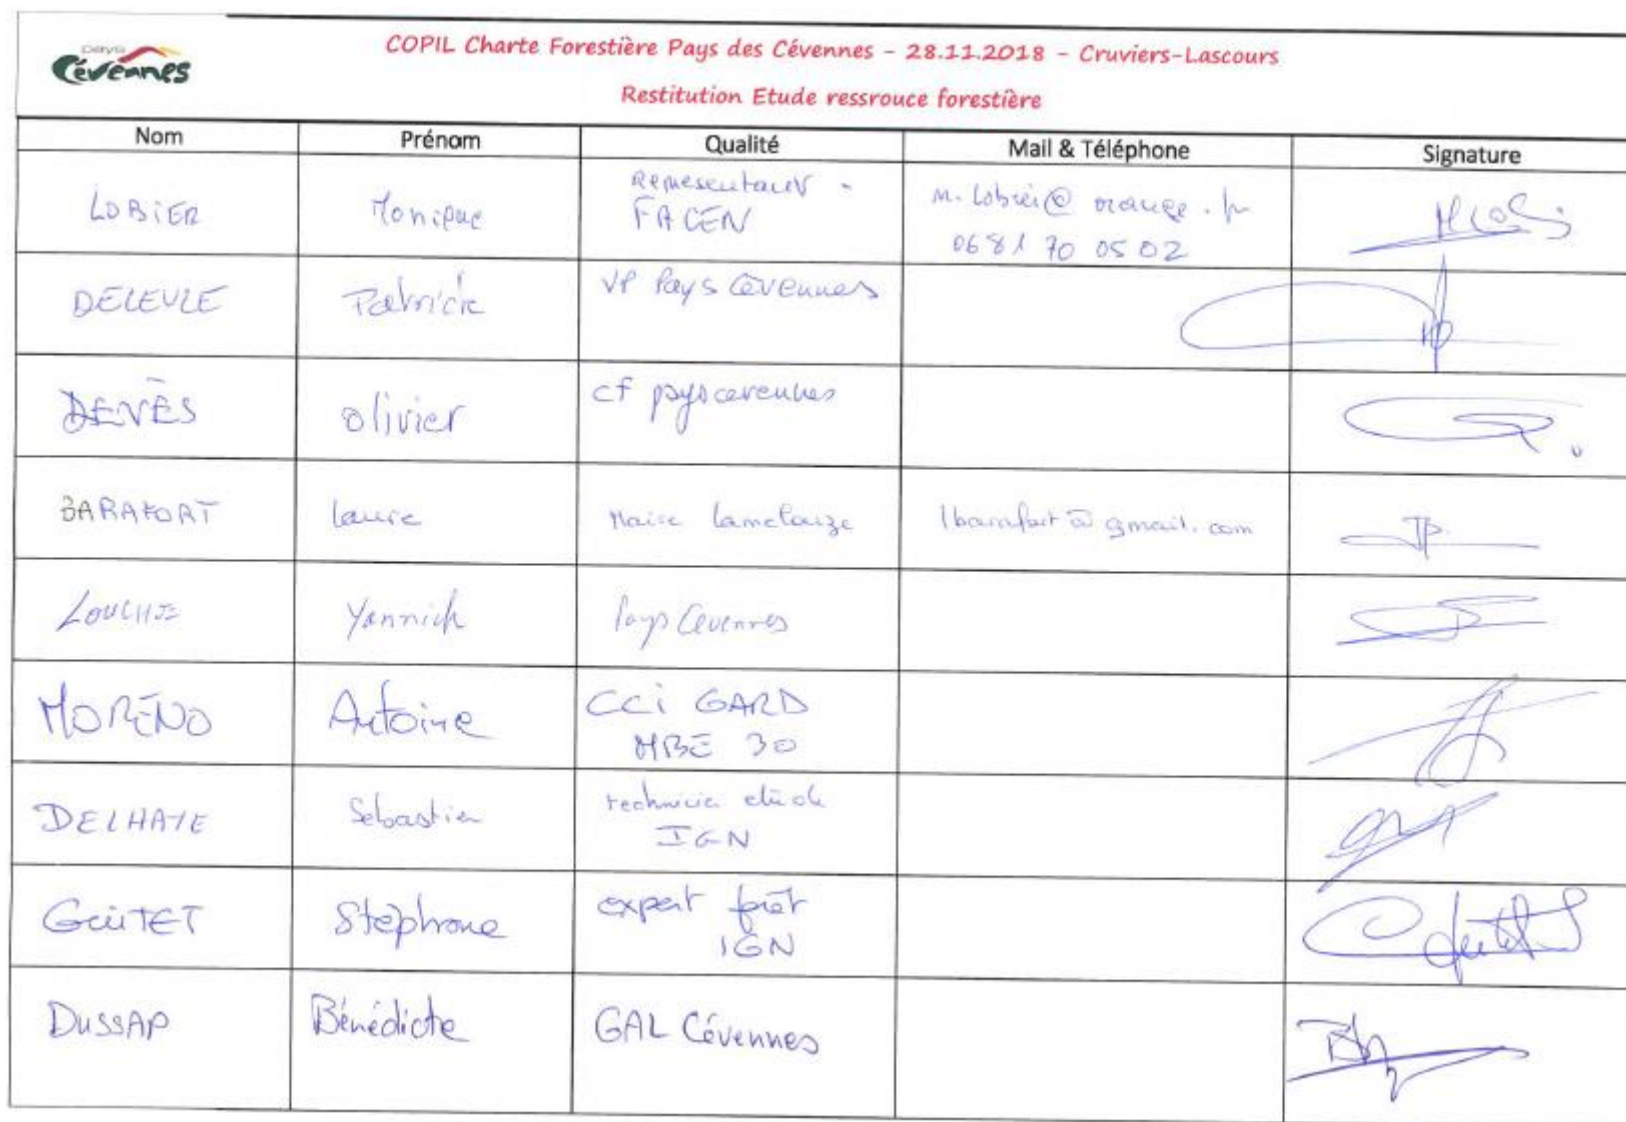 pays
Cévennes
COPIL Charte Forestière Pays des Cévennes - 28.11.2018 - Cruviers-Lascours
Restitution Etude ressrouce forestière
Nom Prénom Qualité Mail & Téléphone Signature
LOBIER Monique Representant - FACEN m. lobier@orange.fr 06 81 70 05 02
DELEULE Patrick VP Pays Cévennes
DEVÈS olivier CF pays cevennes
BARAFORT Laure Maire Lamelouze lbarafort@gmail.com
LOUCHE Yannick Pays Cévennes
MORENO Antoine CCi GARD
MBE 30
DELHAYE Sebastien technicie étude
IGN
GUITET Stéphane expert forêt
IGN
DUSSAP Bénédicte GAL Cévennes